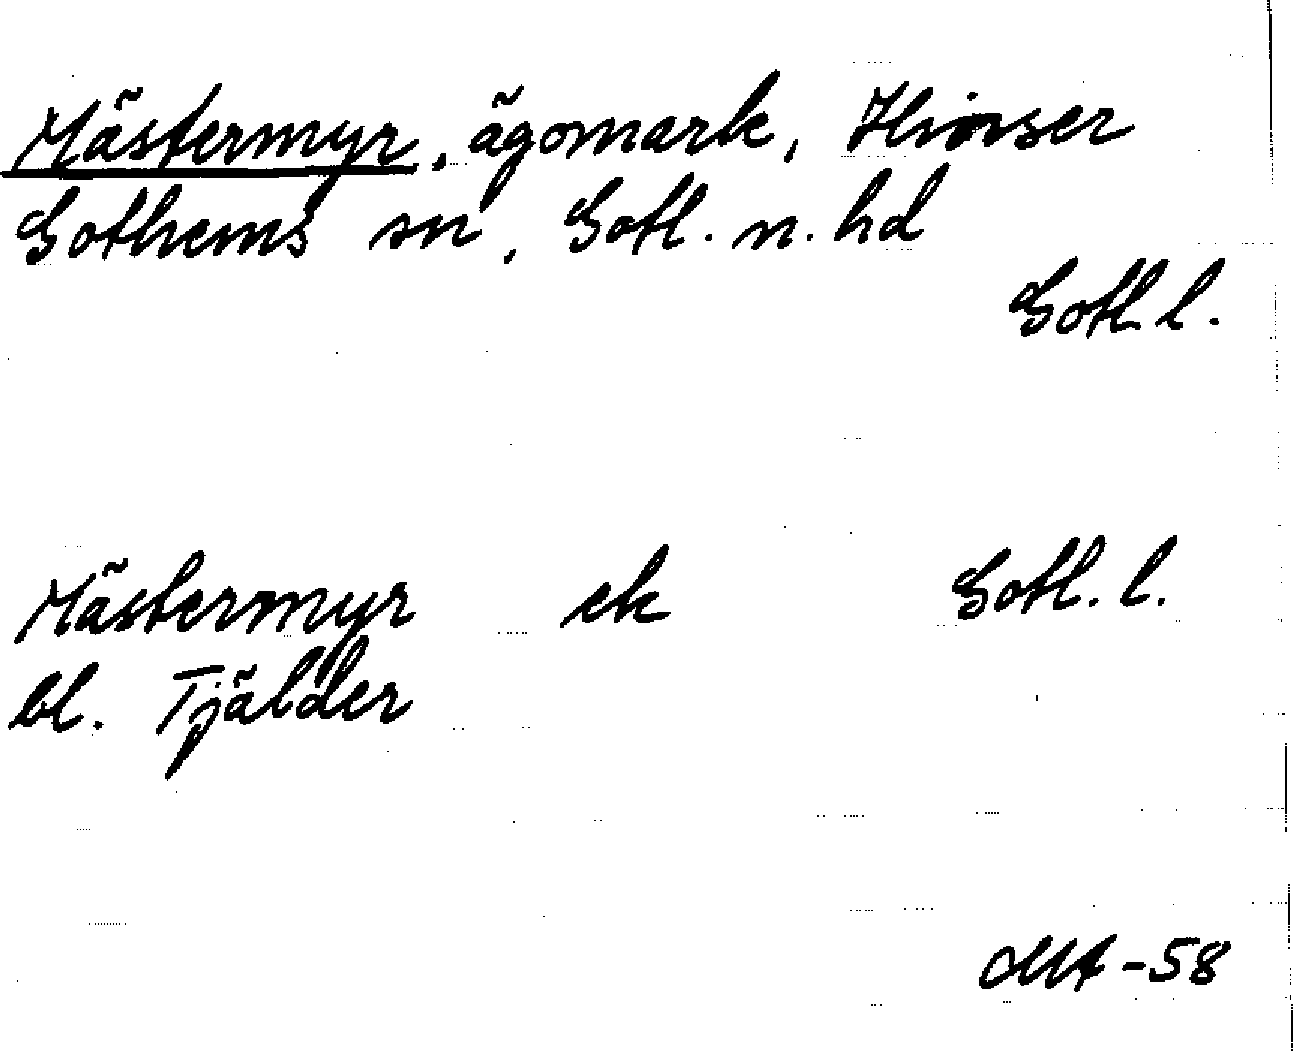 Mästermyr, ägomark,
Gothems sn, Gotl. n. hd
Gotl. l.
Mästermyr ek Gotl. l.
bl. Tjälder
-58